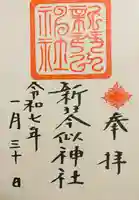 奉拝
新琴似神社
令和七年
一月三十日
新琴似
神社